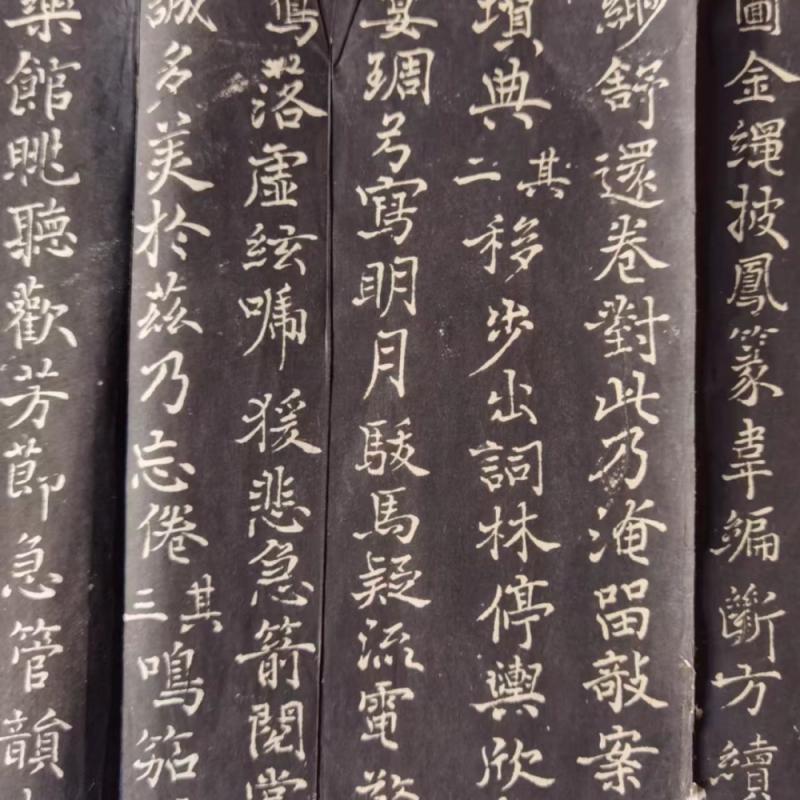 圖金繩披鳳篆韋編斷方續
舒還卷對此乃淹留敧案
墳典其二移步出詞林停輿欣
宴琱弓寫明月駿馬疑流電驚
落虛絃嗁猨悲急箭閱賞
誠多美於茲乃忘倦其三鳴笳
樂館眺聽歡芳節急管韻